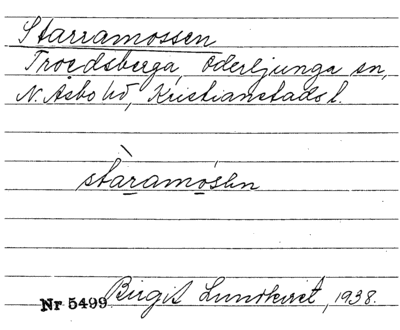 Starramossen
Troedsberga, Oderljunga sn,
N. Åsbo hd, Kristianstads l.
stàramósen
Nr 5499 Birgit Lundkvist, 1938.